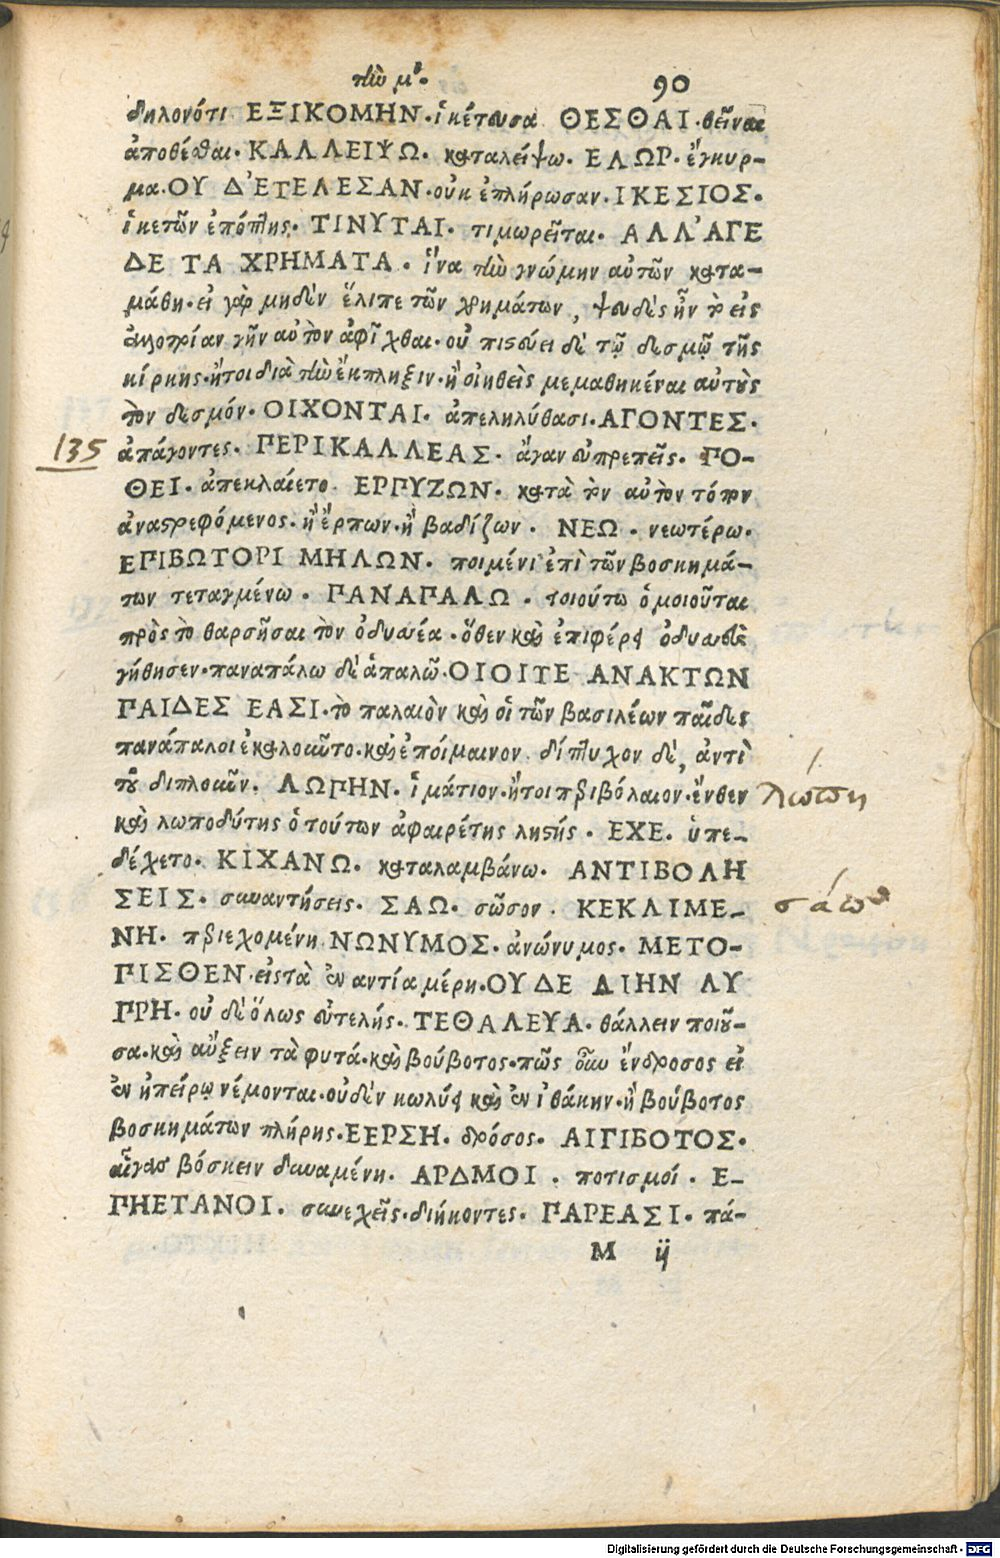 τὴν μο. 90
δηλονότι ΕΞΙΚΟΜΗΝ· ἱκέτευσα ΘΕΣΘΑΙ· θεῖναι
ἀποθέσθαι· ΚΑΛΛΕΙΨΩ. καταλείψω. ΕΛΩΡ· ἔγκυρ-
μα· ΟΥ Δ'ΕΤΕΛΕΣΑΝ· οὐκ ἐπλήρωσαν. ΙΚΕΣΙΟΣ.
ἱκετῶν ἐπόπτης. ΤΙΝΥΤΑΙ. τιμωρεῖται. ΑΛΛ'ΑΓΕ
ΔΕ ΤΑ ΧΡΗΜΑΤΑ. ἵνα τὴν γνώμην αὐτῶν κατα-
μάθη· εἰ γὰρ μηδὲν ἔλιπε τῶν χρημάτων, ψευδὲς ἦν τὸ εἰς
ἀλλοτρίαν γῆν αὐτὸν ἀφῖχθαι· οὐ πιστεύει δὲ τῷ δεσμῷ τῆς
κίρκης· ἤτοι διὰ τὴν ἔκπληξιν· ἢ οἰηθεὶς μεμαθηκέναι αὐτοὺς
τὸν δεσμόν· ΟΙΧΟΝΤΑΙ. ἀπεληλύθασι. ΑΓΟΝΤΕΣ.
135 ἀπάγοντες. ΠΕΡΙΚΑΛΛΕΑΣ. ἄγαν εὐπρεπεῖς. ΠΟ-
ΘΕΙ. ἀπεκλαίετο. ΕΡΠΥΖΩΝ. κατὰ τὸν αὐτὸν τόπον
ἀναστρεφόμενος· ἢ ἕρπων· ἢ βαδίζων. ΝΕΩ. νεωτέρω.
ΕΠΙΒΩΤΟΡΙ ΜΗΛΩΝ. ποιμένι ἐπὶ τῶν βοσκημά-
των τεταγμένω. ΠΑΝΑΠΑΛΩ. τοιούτω ὁμοιοῦται
πρὸς τὸ θαρσῆσαι τὸν ὀδυσσέα· ὅθεν καὶ ἐπιφέρει ὀδυσσεὺς
γήθησεν· παναπάλω δὲ ἁπαλῶ. ΟΙΟΙ ΤΕ ΑΝΑΚΤΩΝ
ΠΑΙΔΕΣ ΕΑΣΙ· τὸ παλαιὸν καὶ οἱ τῶν βασιλέων παῖδες
πανάπαλοι ἐκαλοῦντο· καὶ ἐποίμαινον. δίπτυχον δέ, ἀντὶ
τοῦ διπλοῦν. ΛΩΠΗΝ. ἱμάτιον· ἤτοι περιβόλαιον· ἔνθεν λώπη
καὶ λωποδύτης ὁ τούτων ἀφαιρέτης ληστής. ΕΧΕ. ὑπε-
δέχετο. ΚΙΧΑΝΩ. καταλαμβάνω. ΑΝΤΙΒΟΛΗ
ΣΕΙΣ. συναντήσεις. ΣΑΩ. σῶσον. ΚΕΚΛΙΜΕ-
ΝΗ. περιεχομένη ΝΩΝΥΜΟΣ. ἀνώνυμος. ΜΕΤΟ-
ΠΙΣΘΕΝ· εἰς τὰ ἐναντία μέρη. ΟΥΔΕ ΛΙΗΝ ΛΥ
ΠΡΗ. οὐ δὲ ὅλως εὐτελής. ΤΕΘΑΛΕΥΑ. θάλλειν ποιοῦ-
σα· καὶ αὔξειν τὰ φυτά· καὶ βούβοτος· πῶς οὖν ἔνδροσος εἰ
ἐν ἠπείρω νέμονται· οὐδὲν κωλύει καὶ ἐν ἰθάκην· ἢ βούβοτος
βοσκημάτων πλήρης. ΕΕΡΣΗ. δρόσος. ΑΙΓΙΒΟΤΟΣ.
αἶγας βόσκειν δυναμένη. ΑΡΔΜΟΙ. ποτισμοί. Ε-
ΠΗΕΤΑΝΟΙ. συνεχεῖς· διήκοντες. ΠΑΡΕΑΣΙ. πά-
M ij
Digitalisierung gefördert durch die Deutsche Forschungsgemeinschaft - DFG